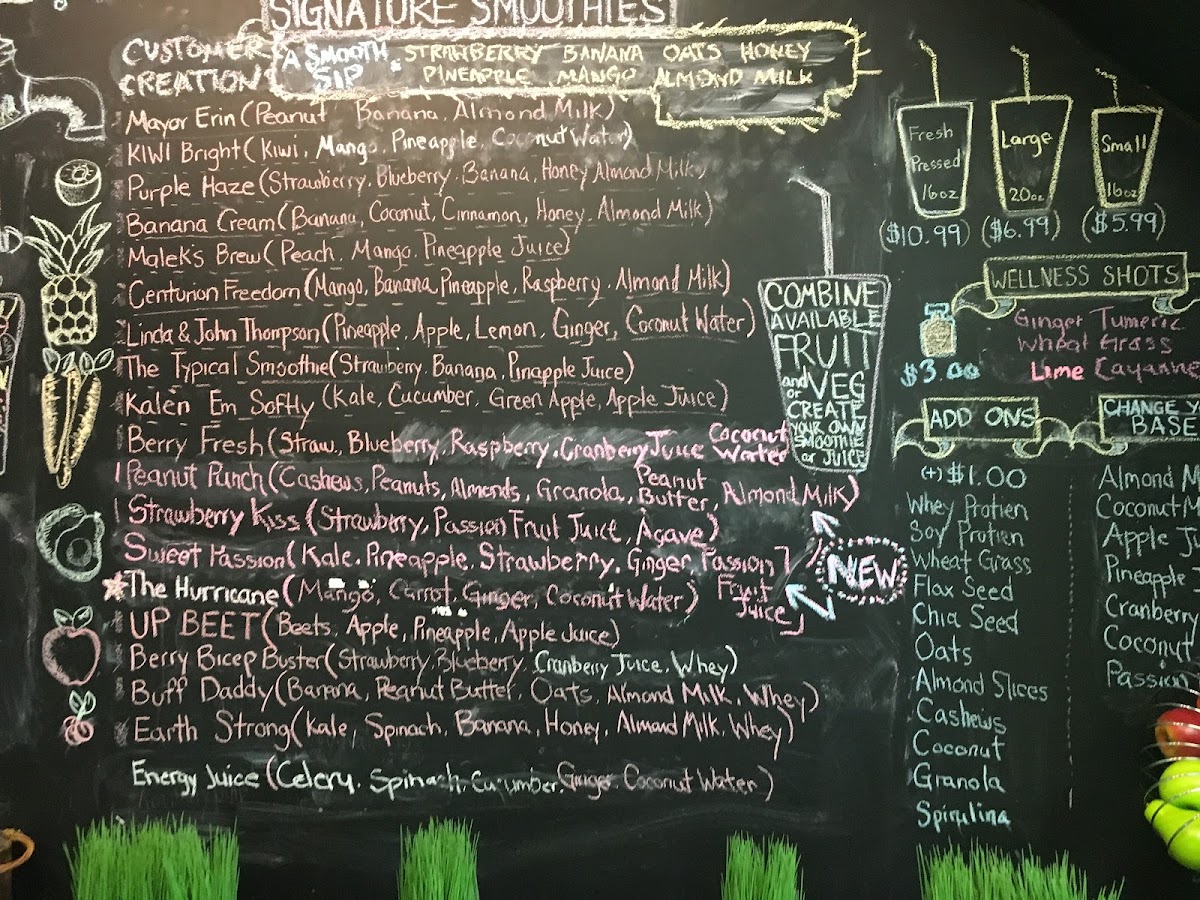 SIGNATURE SMOOTHIES
CUSTOMER CREATION
A SMOOTH SIP STRAWBERRY BANANA OATS HONEY
PINEAPPLE MANGO ALMOND MILK
Mayor Erin (Peanut Banana, Almond Milk)
KIWI Bright (Kiwi, Mango, Pineapple, Coconut Water)
Purple Haze (Strawberry, Blueberry, Banana, Honey Almond Milk
Banana Cream (Banana, Coconut, Cinnamon, Honey, Almond Milk)
Malek's Brew (Peach, Mango, Pineapple Juice)
Centurion Freedom (Mango, Banana, Pineapple, Raspberry, Almond Milk)
Linda & John Thompson (Pineapple, Apple, Lemon, Ginger, Coconut Water)
The Typical Smoothie (Strawberry, Banana, Pinapple Juice)
Kalen Em Softly (Kale, Cucumber, Green Apple, Apple Juice)
Berry Fresh (Straw, Blueberry, Raspberry, Cranberry Juice Coconut Water
Peanut Punch (Cashews, Peanuts, Almonds, Granola, Peanut Butter, Almond Milk)
Strawberry Kiss (Strawberry, Passion Fruit Juice, Agave)
Sweet Passion (Kale, Pineapple, Strawberry, Ginger, Passion Fruit Juice]
The Hurricane (Mango, Carrot, Ginger, Coconut Water)
UP BEET (Beets, Apple, Pineapple, Apple Juice)
Berry Bicep Buster (Strawberry, Blueberry, Cranberry Juice, Whey)
Buff Daddy (Banana, Peanut Butter, Oats, Almond Milk, Whey)
Earth Strong (Kale, Spinach, Banana, Honey, Almond Milk, Whey)
Energy Juice (Celery, Spinach, Cucumber, Ginger, Coconut Water)
NEW
COMBINE
AVAILABLE
FRUIT
and or VEG
CREATE
YOUR OWN
SMOOTHIE
or JUICE
Fresh
Pressed
16oz
($10.99)
Large
20oz
($6.99)
Small
16oz
($5.99)
WELLNESS SHOTS
$3.00
Ginger Tumeric
Wheat Grass
Lime Cayanne
ADD ONS
(+) $1.00
Whey Protien
Soy Protien
Wheat Grass
Flax Seed
Chia Seed
Oats
Almond Slices
Cashews
Coconut
Granola
Spirulina
CHANGE
BASE
Almond
Coconut
Apple
Pineapple
Cranberry
Coconut
Passion